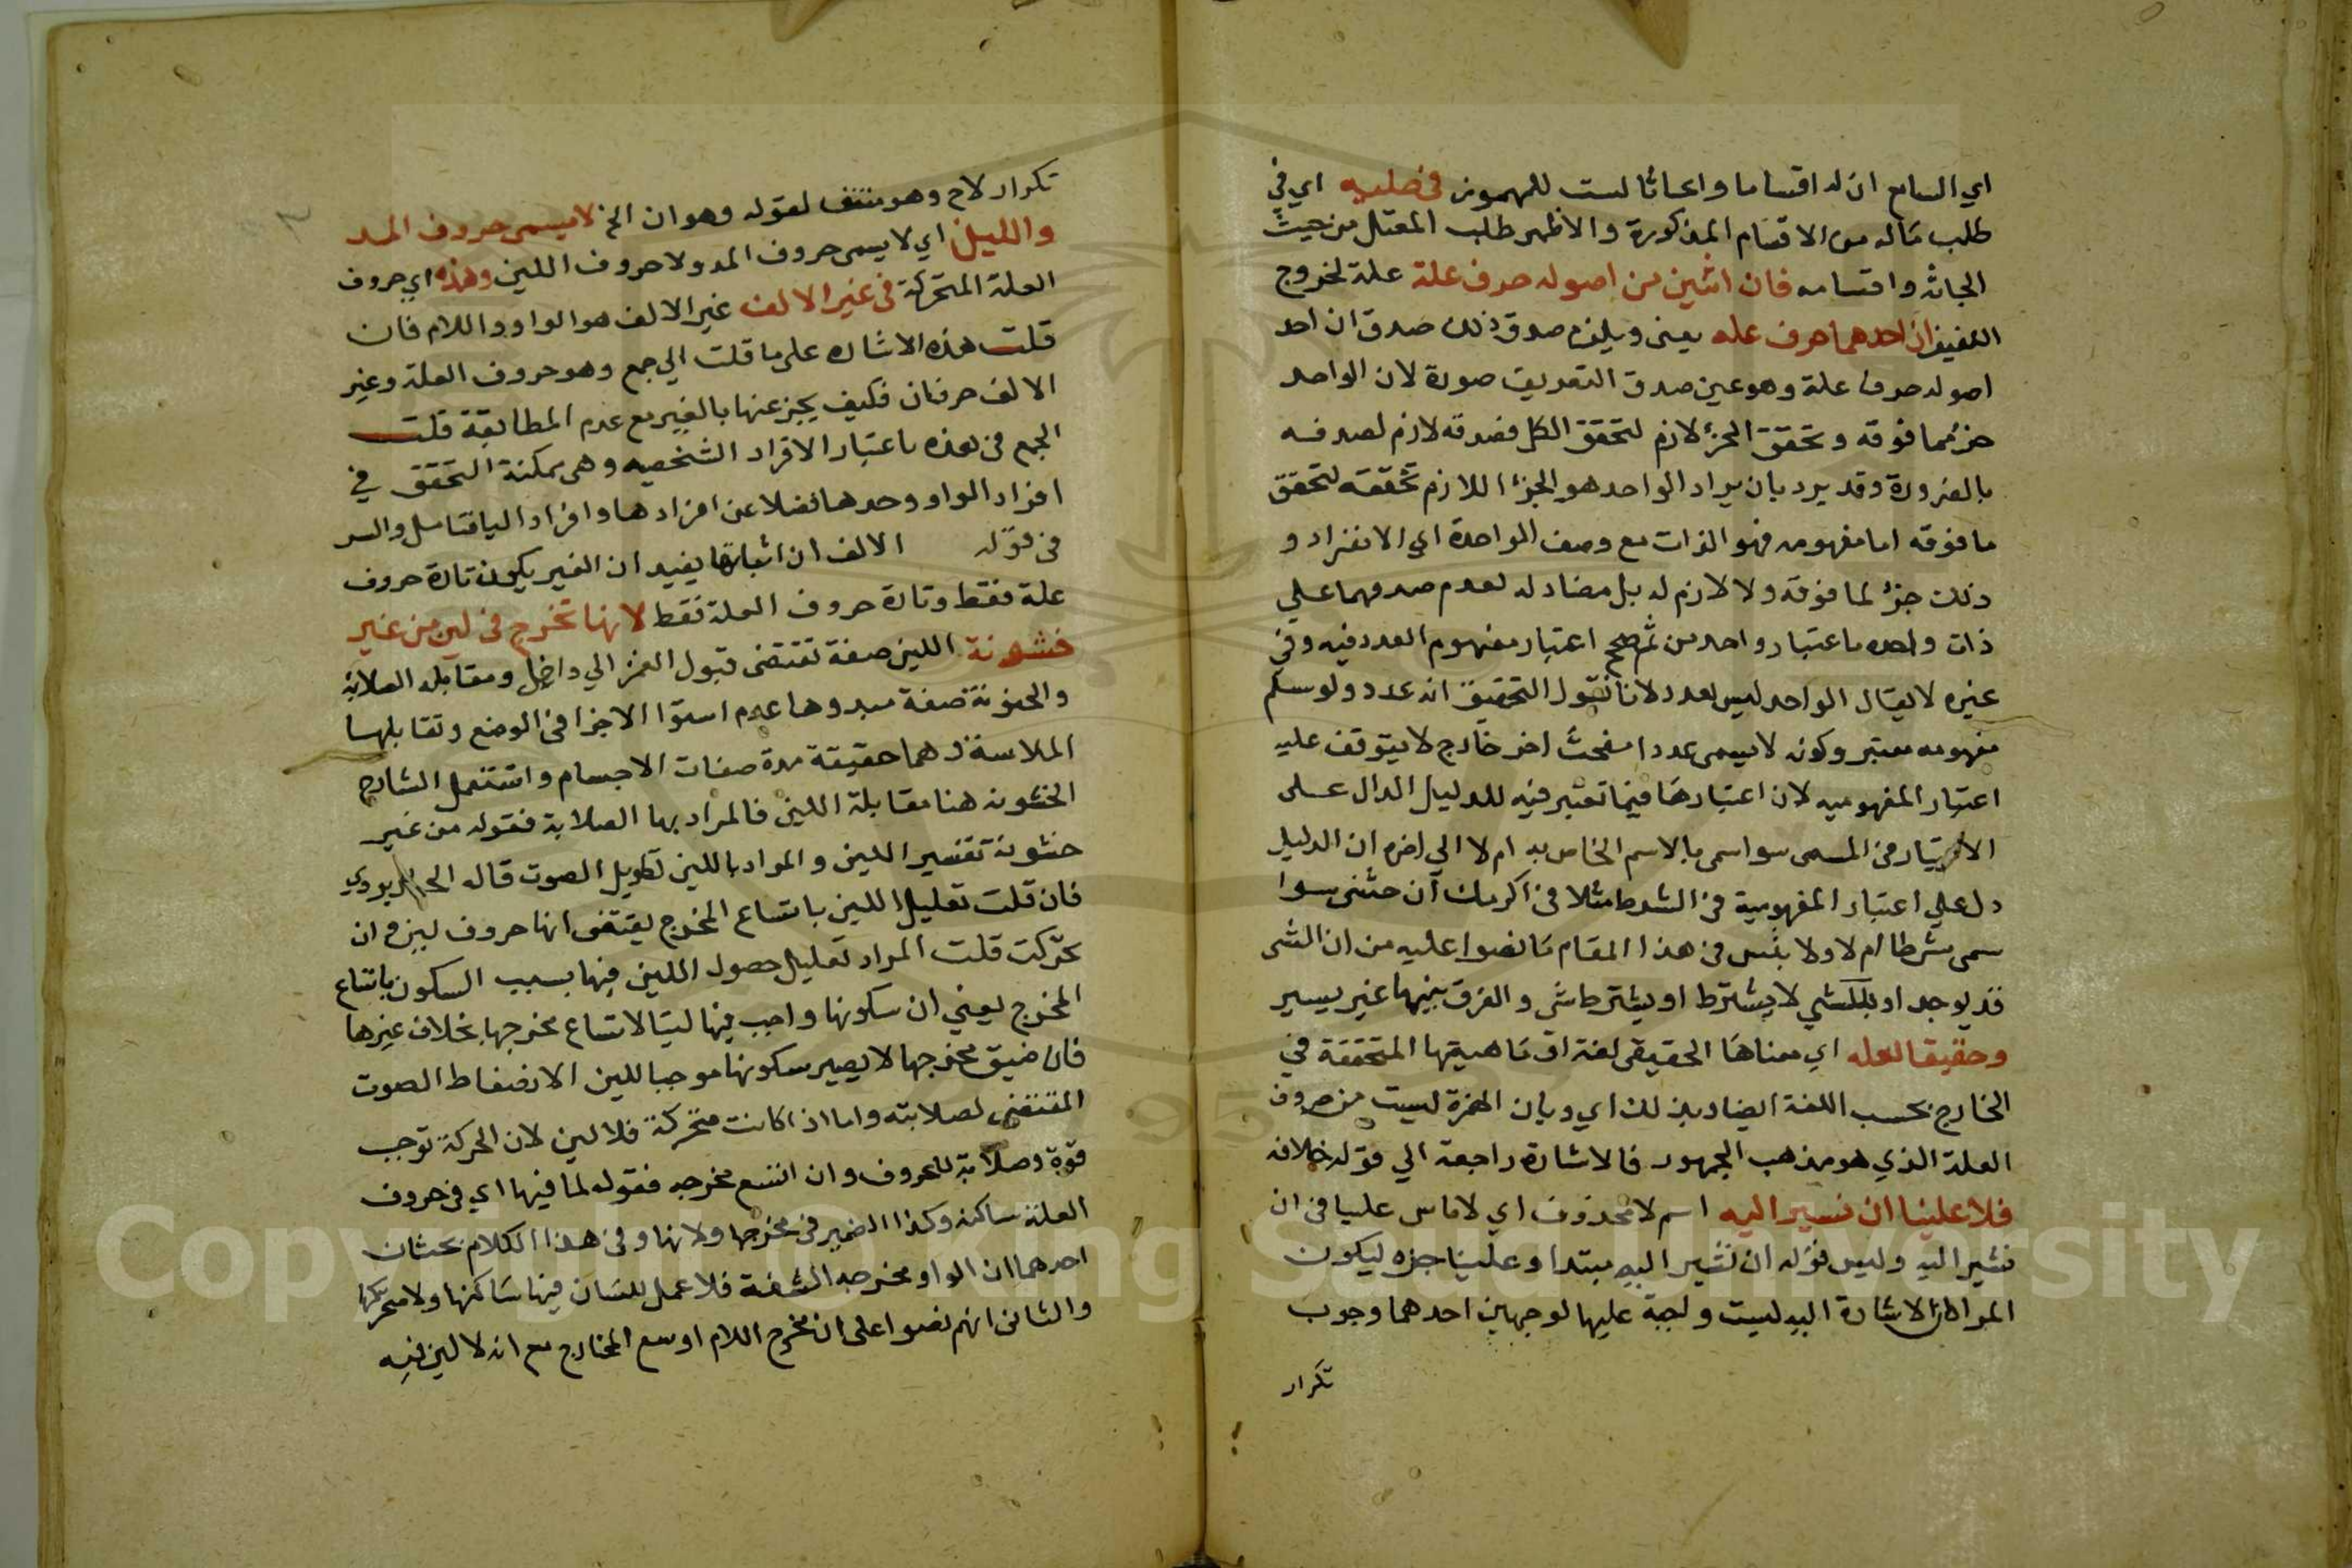 اي السامع ان له اقساما وابحاثا ليست للمهموز في طلبه اي في
طلب ماله من الاقسام المذكورة والاظهر طلب المعتل من حيث
ابحاثه واقسامه فان اثنين من اصوله حرف علة علة لخروج
اللفيف ان احدهما حرف عله يعني ويلزم صدق ذلك صدق ان احد
اصوله حرف علة وهو عين صدق التعريف صورة لان الواحد
جزء مما فوقه وتحقق الجزء لازم لتحقق الكل فصدقه لازم لصدقه
بالضرورة وقد يرد بان يراد الواحد هو الجزء اللازم تحققه لتحقق
ما فوقه اما مفهومه فهو الذات مع وصف الواحدة اي الانفراد و
ذلك جزء لما فوقه ولا لازم له بل مضاد له لعدم صدقهما علي
ذات واحده باعتبار واحد من ثم صح اعتبار مفهوم العدد فيه وفي
غيره لا يقال الواحد ليس بعدد لانا نقول التحقيق انه عدد ولو سلم
مفهومه معتبر وكونه لا يسمى عددا مبحث اخر خارج لا يتوقف عليه
اعتبار المفهوميه لان اعتبارها فيما تعتبر فيه للدليل الدال على
في المسمى سوا سمي بالاسم الخاص به ام لا الي اخره ان الدليل
دل علي اعتبار المفهومية في الشرط مثلا في اكرمك ان جئتني سوا
سمى شرطا ام لا ولا ينس في هذا المقام ما نصوا عليه من ان الشي
قد يوجد اولا يشترط او يشترط شي والفرق بينهما غير يسير
وحقيقا لعله اي معناها الحقيقي لغة اي ماهيتها المتحققة في
الخارج بحسب اللغة ايضا دين لك اي وبان الهمزة ليست من حروف
العلة الذي هو مذهب الجمهور فالاشارة راجعة الي قوله خلافه
فلا علينا ان نسير اليه اسم لا محذوف اي لا باس علينا في ان
نشير اليه وليس قوله ان نشير اليه مبتدا وعلينا خبره ليكون
المراد ان الاشارة اليه ليست واجبة عليها لوجهين احدهما وجوب
تكرار
تكرار لاح وهو منتف لقوله وهو ان الخ لا يسمى حروف المد
والليني اي لا يسمى حروف المد ولا حروف اللين وهذه اي حروف
العلة المتحركة في غير الالف غير الالف هو الواو واللام فان
قلت هذه الاشاره على ما قلت الي جمع وهو حروف العلة وغير
الالف حرفان فكيف يخبر عنها بالغير مع عدم المطابقة قلت
الجمع في هذه باعتبار الافراد الشخصيه وهي ممكنة التحقق في
افراد الواو وحدها فضلا عن افرادها وافراد اليا فتامل والسر
في قوله الالف ان اثباتها يفيد ان الغير يكون تارة حروف
علة فقط وتارة حروف العلة فقط لانها تخرج في لين من غير
خشونة اللين صفة تقتضي قبول الغمز الي داخل ومقابله الصلابة
والخشونة صفة مبدوها عدم استوا الاجزا في الوضع وتقابلها
الملاسة وهما حقيقة مدة صفات الاجسام واستعمل الشارح
الخشونه هنا مقابلة اللين فالمراد بها الصلابة فقوله من غير
خشونة تفسير اللين والمراد باللين تطويل الصوت قاله الجاربردي
فان قلت تعليل اللين باتساع المخرج يقتضي انها حروف لين وان
تحركت قلت المراد تعليل حصول اللين فيها بسبب السكون باتساع
المخرج يعني ان سكونها واجب فيها لينا لاتساع مخرجها بخلاف غيرها
فان ضيق مخرجها لا يصير سكونها موجبا للين الانضغاط الصوت
المقتضي لصلابته واما اذا كانت متحركة فلا لين لان الحركة توجب
قوة وصلابة للحروف وان اتسع مخرجه فقوله لما فيها اي في حروف
العلة ساكنه وكذا الضمير في مخرجها ولانها وفي هذا الكلام بحثان
احدهما ان الواو مخرجه الشفة فلا عمل للسان فيها ساكنها ولا متحركها
والثاني انهم نصوا على ان مخرج اللام اوسع المخارج مع انه لا لين فيه
Copyright © King Saud University